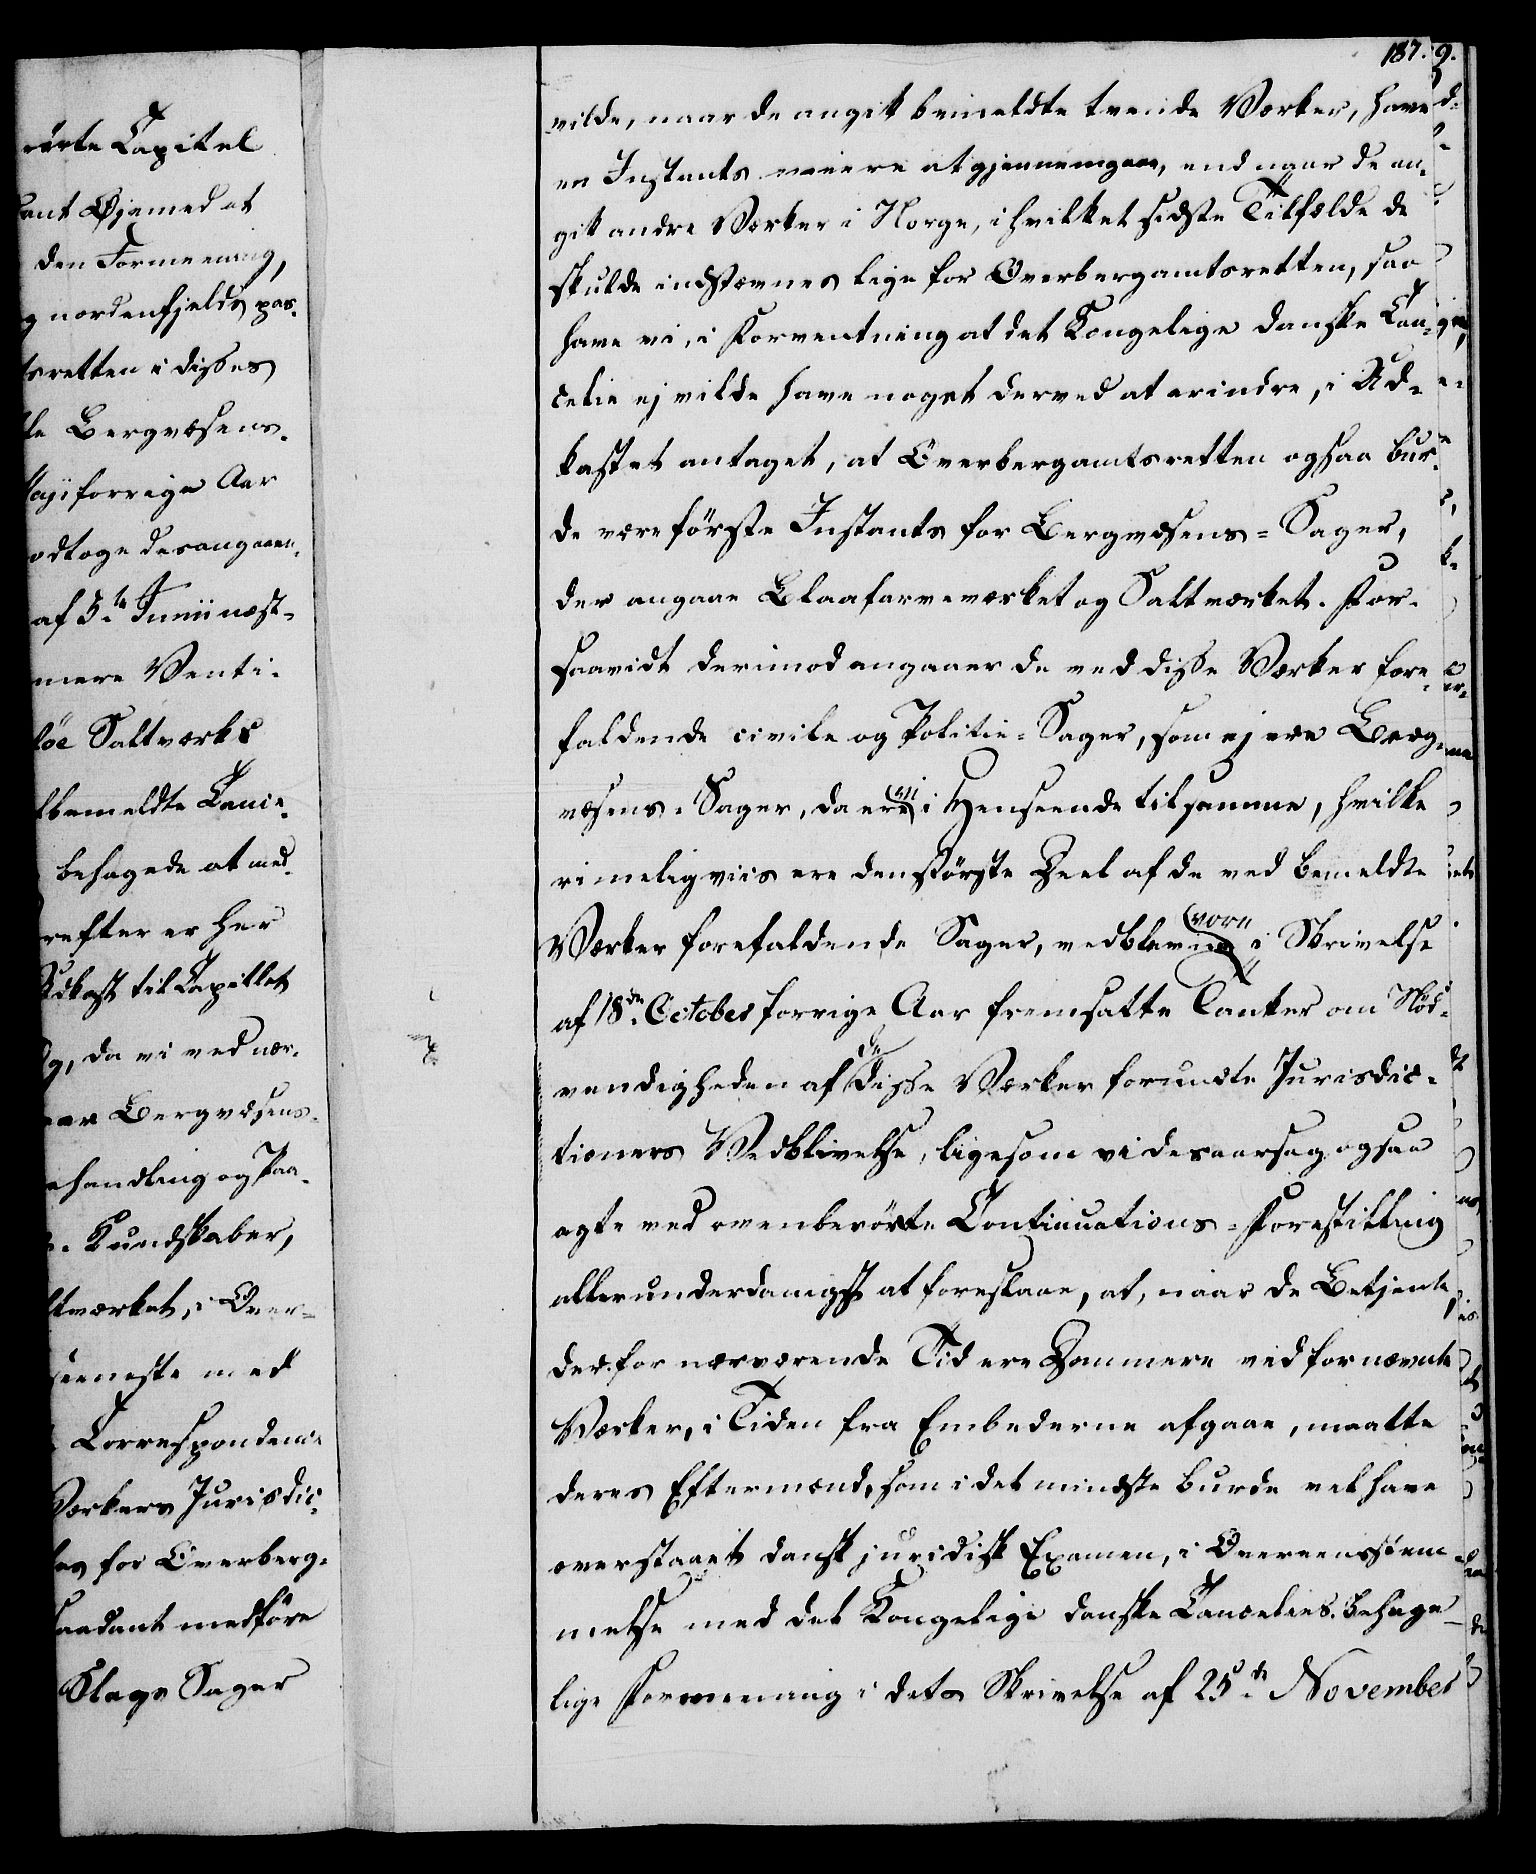 187. 9.
rörte Capitel
ant Øjemed at
den Formeening,
g nordenfjelds pas-
tsretten i disses
te Bergvæsens-
forrige Aar
odtoge desangaaen-
af 5.te Junii næst-
mere Venti-
löe Saltværks
lbemeldte Cance-
behagede at med-
refter er her
Udkast til Capitlet
og, da vi ved nær-
Bergvæsens-
ehandling og Paa-
Kundskaber,
ltværket, i Over-
eeneste med
Correspondence
Værkers Jurisdic-
es for Overberg-
saadant medföre
Klage Sager
vilde, naar de angik bemeldte tvende Værker, have
en Instants meere at gjennemgaae, end naar de an-
gik andre Værker i Norge, i hvilket sidste Tilfælde de
skulde indstævnes lige for Overbergamtsretten, saa
have vi, i Forventning at det Kongelige danske Can-
celie ej vilde have noget derved at erindre, i Ud-
kastet antaget, at Overbergamtsretten ogsaa bur-
de være förste Instants for Bergvæsens-Sager,
der angaae Blaafarveværket og Saltværket. For-
saavidt derimod angaaer de ved disse Værker fore-
faldende civile og Politie-Sager, som ej ere Berg-
væsens-Sager, da ere vi i Henseende til samme, hvilke
rimeligviis ere den störste Deel af de ved bemeldte
Værker forefaldende Sager, vedbleven vore i Skrivelse
af 18de October forrige Aar fremsatte Tanker om Nöd-
vendigheden af de disse Værker forundte Jurisdic-
tioners Vedblivelse, ligesom vi desaarsag ogsaa
agte ved ovenberörte Continuations-Forestilling
allerunderdanigst at foreslaae, at, naar de Betjente,
der for nærværende Tid ere Dommere ved fornævnte
Værker, i Tiden fra Embederne afgaae, maatte
deres Eftermænd, som i det mindste burde vel have
overstaaet dansk juridisk Examen, i Overeensstem-
melse med det Kongelige danske Cancelies behage-
lige Formeening i dets Skrivelse af 25de November